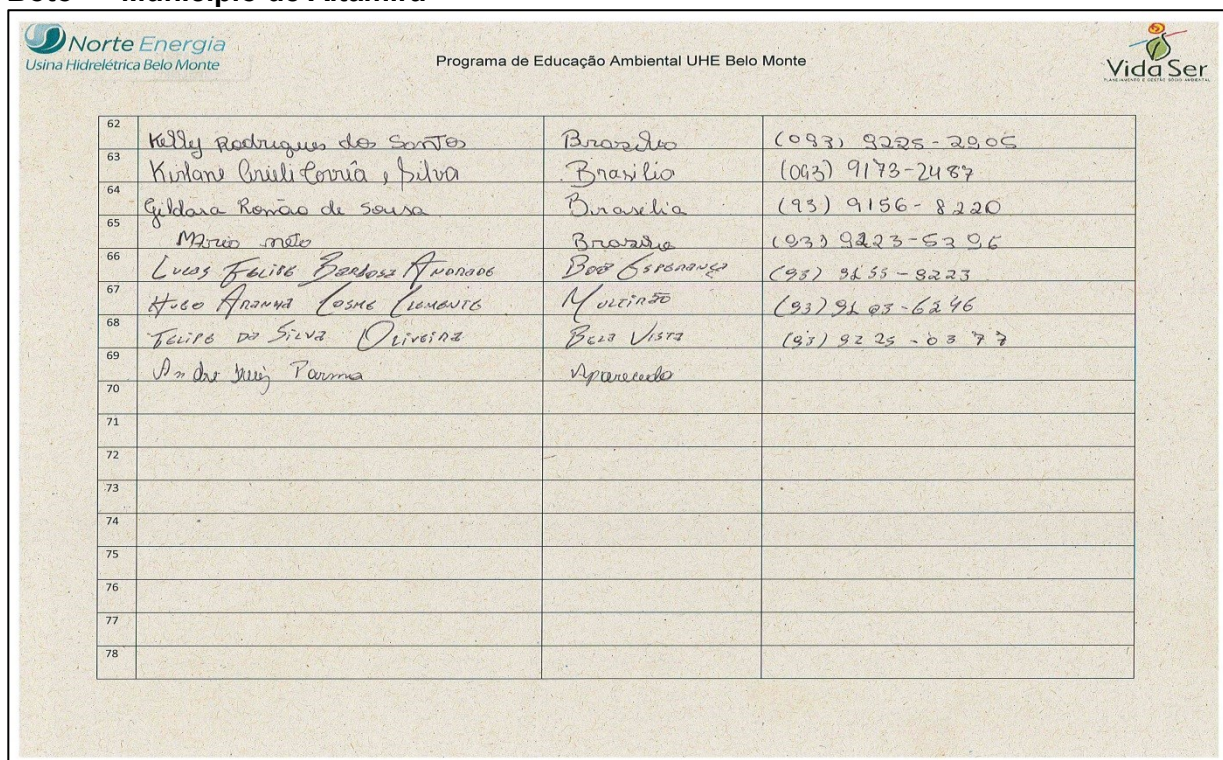 Norte Energia
Usina Hidrelétrica Belo Monte
Programa de Educação Ambiental UHE Belo Monte
Vida Ser
PLANEJAMENTO E GESTÃO SÓCIO AMBIENTAL
62 Kelly Rodrigues dos Santos Brasília (093) 9225-2905
63 Silva Brasilia (093) 9173-2487
64 Gildara Romão de Sousa Brasilia (93) 9156-8220
65 Mário neto Brasília (93) 9223-5396
66 Lucas Felipe Barbosa Andrade Boa Esperança (93) 9155-9223
67 Hugo Aranha Cosme Clemente Mutirão (93) 9103-6246
68 Felipe da Silva Oliveira Bela Vista (93) 9225-0377
69 Andre Luiz Parma Aparecida
70
71
72
73
74
75
76
77
78